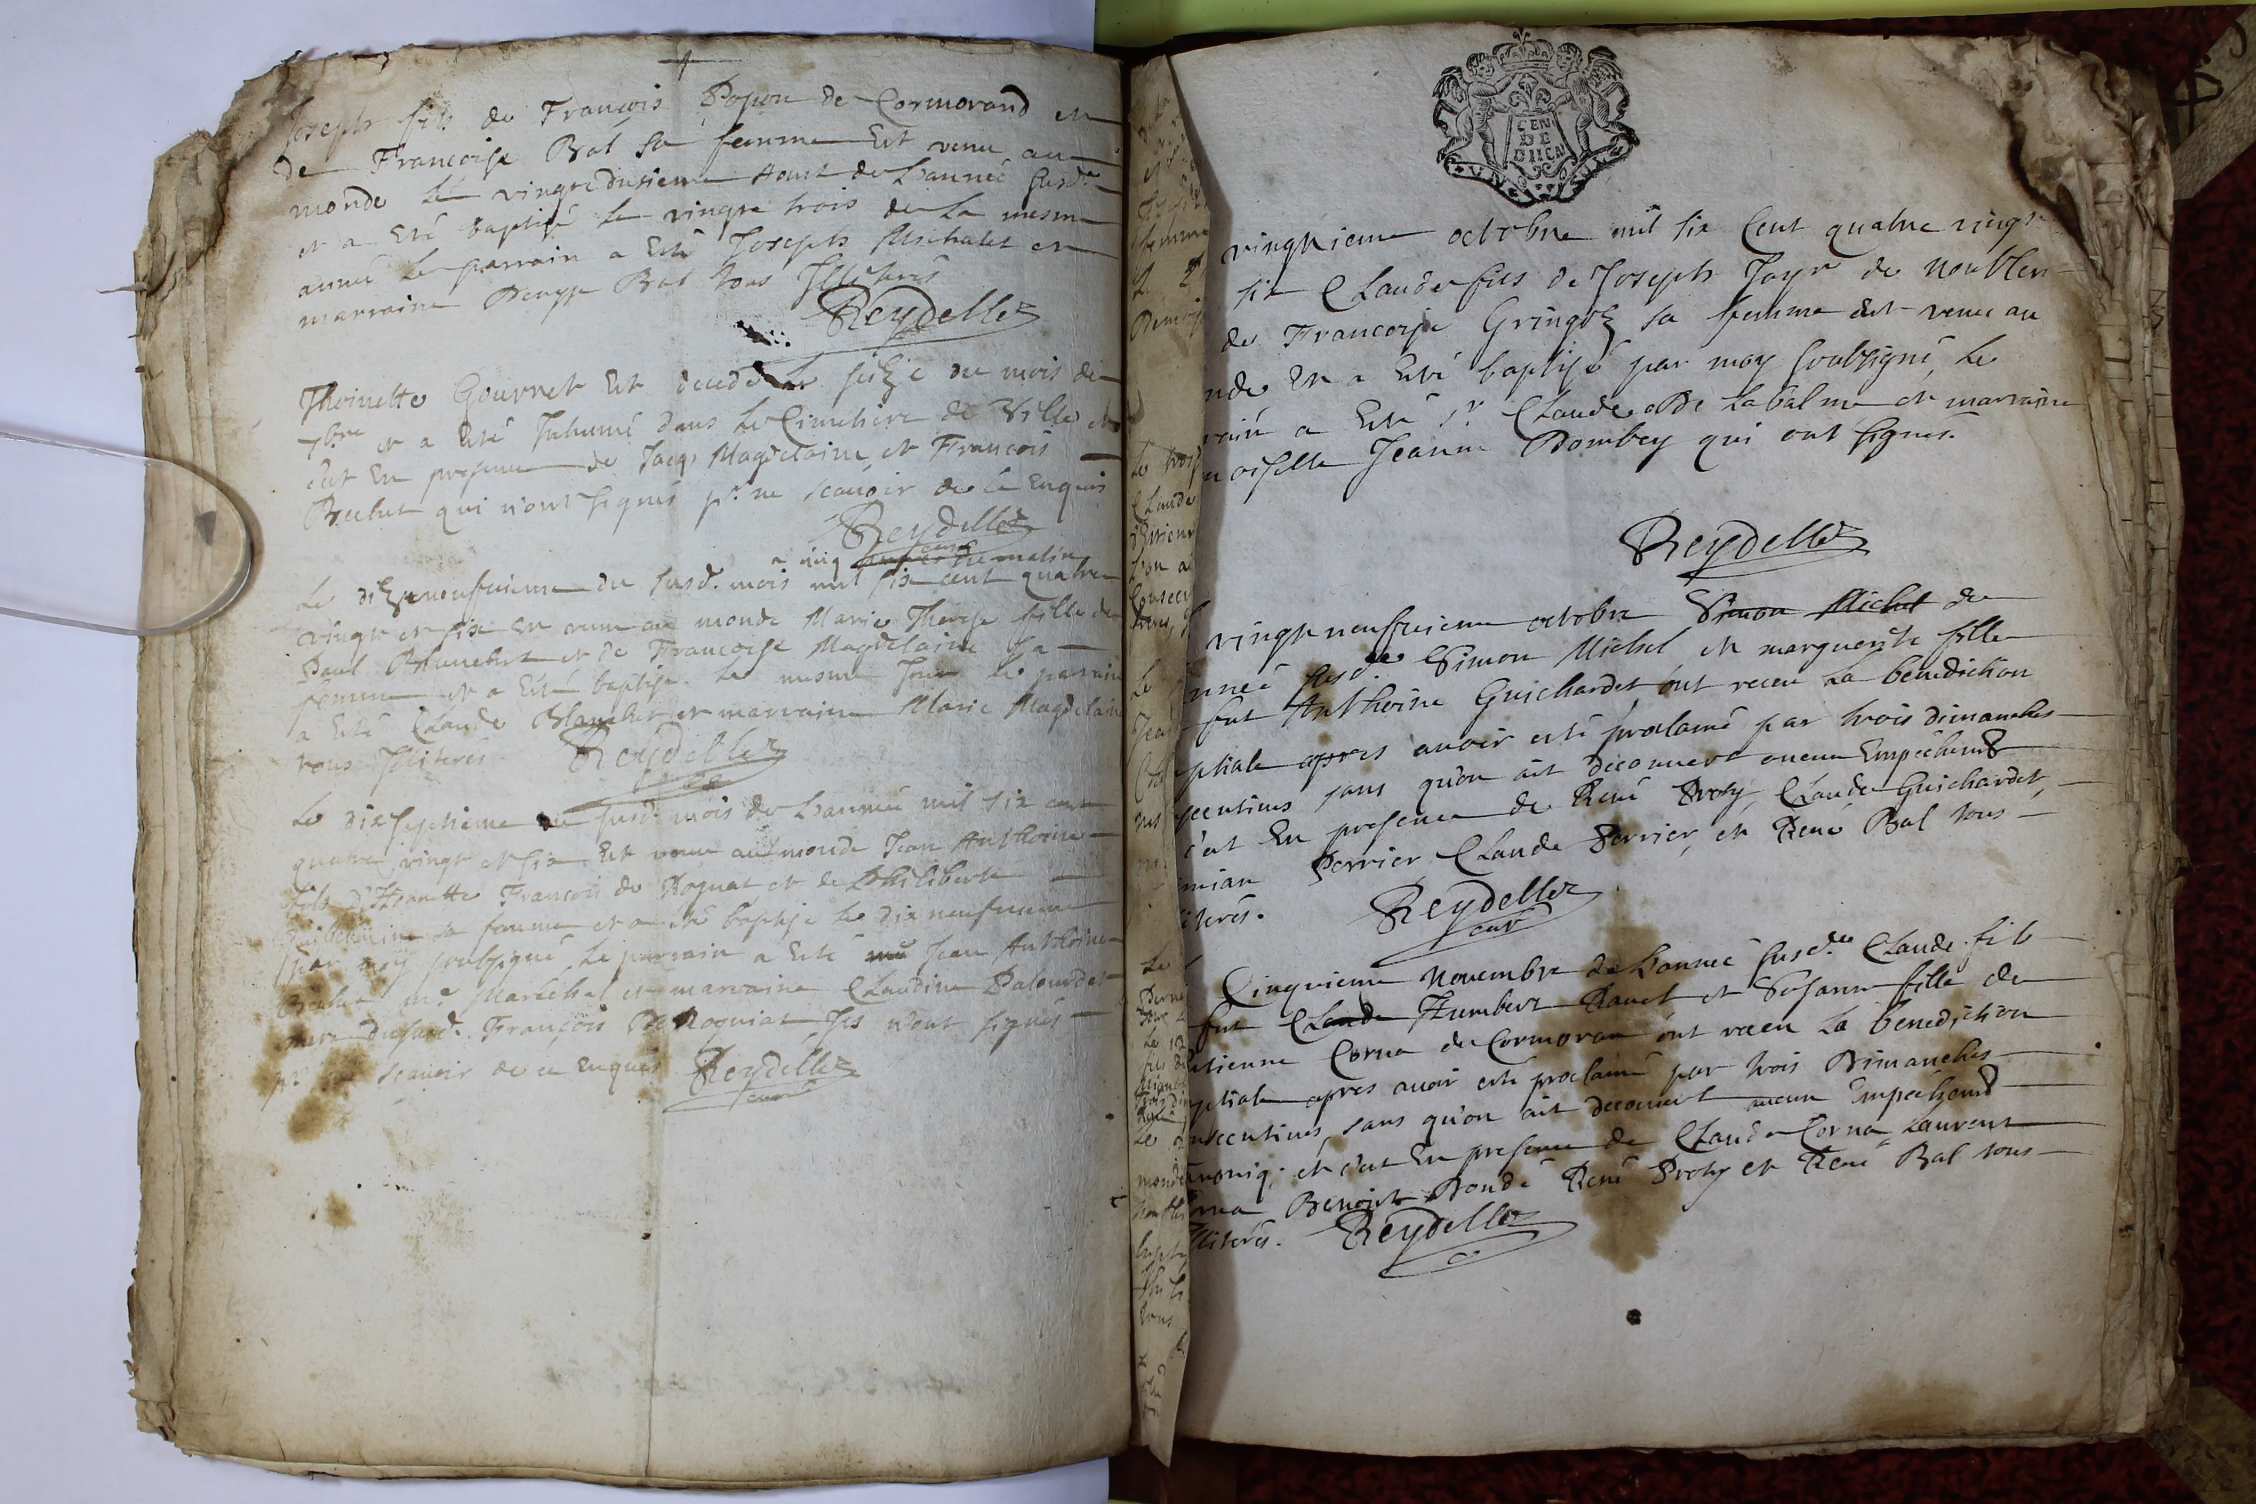 Joseph fils de François Popon de Cormorand et
de Françoise Bal sa femme Est venu au
monde le vingtedusieme Aout de L'année susd.e
et a Eté baptisé le vingte trois de La mesme
année Le parrain a Esté Joseph Michalet et
marraine Denyse Bal tous Illiterés
Reydellet
Thoinette Gourret Est decedé le seizie du mois de
7bre et a Esté Inhumé dans Le Cimetiere de Ville et
c'est En presence de Jacq. Magdelaine et François
Bechet qui n'ont signés pr. ne scauoir de ce Enquis
Reydellet
curé
a cinq du matin
Le dizeneufuieme du susd. mois mil six cent quatre
vingt et six Est venu au monde Marie Therese fille de
Paul et de Francoise Magdelaine sa
femme et a Esté baptisé Le mesme Jour le parrain
a Esté Claude Blanchet et marraine Marie Magdelaine
tous Illiteres Reydellet
Le dixseptieme du susd. mois de L'année mil six cent
quatre vingt et six Est venu au monde Jean Anthoine
fils d' François de Roguat et de Philiberte
sa femme et a eté baptisé Le dix neufuieme
par moy soubsigné Le parrain a Esté Jean Anthoine
me Maréchal et marraine Claudine Palourdet
mere dususd. François De Roguiat Ils n'ont signés
pr. ne scauoir de ce Enquis Reydellet
curé
CEN
DE
DIICA
vingtieme octobre mil six Cent quatre vingt
six Claude fils de Joseph Jayr de noublen
de Francoise Gringoz sa femme est venu au
nde Et a Eté baptisé par moy soubsigné, Le
rain a Eté Sr Claude De Labalme et marraine
oiselle Jeanne Dombey qui ont signés.
Reydellet
vingtneufuieme octobre Simon Michel de
nneé susd.e Simon Michel et marguerite fille
fut Anthoine Guichardet ont receu La benediction
ptiale apres auoir esté proclamé par trois dimanches
secutiues sans qu'on ait decouuert aucun Empéchemt
c'est En presence de René Proty Claude Guichardet,
mian Perrier Claude Perrier, et René Bal tous
iterés. Reydellet
curé
Cinquieme Nouembre de L'année susd.e Claude fils
fut Claude Humbert Rauet et Susanne fille de
tienne Corna de Cormoran ont receu La benediction
ptiale apres auoir esté proclamé par trois Dimanches
nsecutiues, sans qu'on ait decouuert aucun Empechemt
noniq. et c'est En presence de Claude Corna Laurent
rna Benoist Bondé René Proty et René Bal tous
lliterés. Reydellet